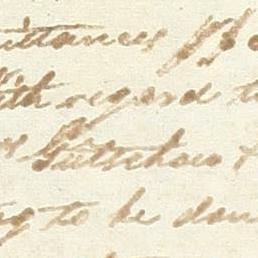 ittances
ith regard to
Guttschow
ng to be don